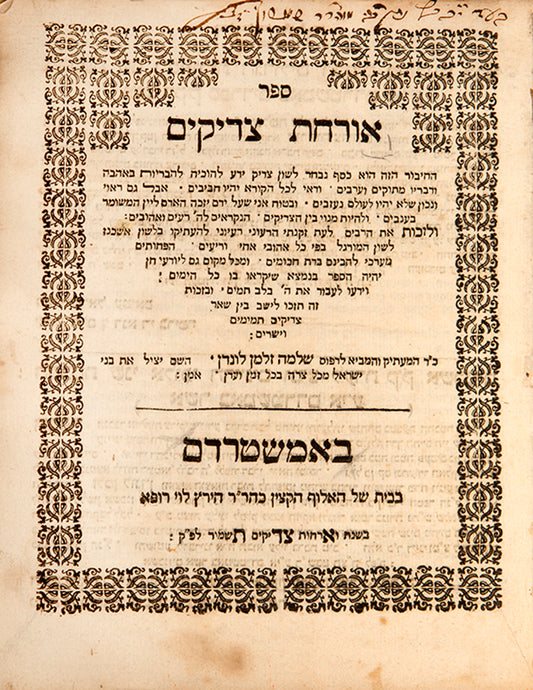 ספר
אורחת צדיקים
החיבור הזה הוא כסף נבחר לשון צדיק ידע להוכיח להבריות באהבה
ודבריו מתוקים וערבים • ודאי לכל הקורא יהיו חביבים • אבל גם ראוי
ונכון שלא יהיו לעולם נעזבים • ובטוח אני שעל ידם יזכה האדם ליין המשומר
בענבים • ולהיות מנוי בין הצדיקים • הנקראים לה' רעים ואהובים :
ולזכות את הרבים • לעת זקנתי הרעוני רעיוני להעתיקו בלשון אשכנז
לשון המורגל בפי כל אהובי אחי וריעים • הפחותים
מערכי להבינם ברת חכומים • ומכל מקום גם ליודעי חן
יהיה הספר בנמצא שיקראו בו כל הימים ;
וידעו לעבוד את ה' בלב תמים • ובזכות
זה תזכו לישב בין שאר
צדיקים תמימים
וישרים ;
כ"ד המעתיק והמביא לדפוס שלמה זלמן לונדן • השם יציל את בני
ישראל מכל צרה בכל זמן ועדן • אמן :
באמשטרדם
בבית של האלוף הקצין כהר"ר הירץ לוי רופא
בשנת וארחות צדיקים תשמור לפ"ק :